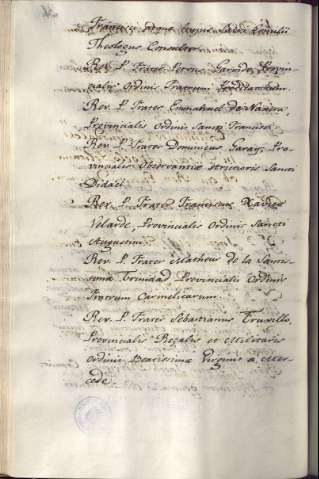 Theologus Consultor.
Rev. P. Frater Petrus Garrido, Provin-
cialis Ordinis Fratrum Predicatorum.
Rev. P. Frater Emmanuel de Naxera,
Provincialis Ordinis Sancti Francisci
Rev. P. Frater Dominicus Garay, Pro-
vincialis Observantiæ Sancti
Didaci.
Rev. P. Frater Franciscus Xavier
Velarde, Provincialis Ordinis Sancti
Augustini.
Rev. P. Frater Matheus de la Santi-
sima Trinidad Provincialis Ordinis
Fratrum Carmelitarum.
Rev. P. Frater Sebastianus Truxillo,
Provincialis Regalis et Militaris
Ordinis Beatissimæ Virginis a Mer-
cede.